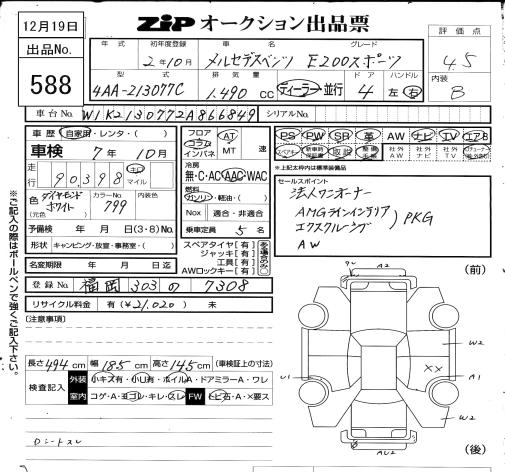 12月19日
ZIP オークション出品票
評価点
4.5
出品No.
588
年式 初年度登録 車名 グレード
2年10月 メルセデスベンツ E200スポーツ
型式 排気量 ドア ハンドル
4AA-213077C 1.490 cc ディーラー・並行 4 左・右
内装
B
車台No. W1K2130772A866849 シリアルNo.
車歴 自家用・レンタ・( )
車検 7年10月
走行 90,398 キロ マイル
色 ダイヤモンドホワイト (元色) カラーNo. 799 内装色
予備検 年 月 日(3・8)No.
形状 キャンピング・放宣・事務室・( )
名変期限 年 月 日迄
フロア コラム インパネ AT MT 速
冷房
無・C・AC・AAC・WAC
燃料
ガソリン・軽油・( )
Nox 適合・非適合
乗車定員 5名
スペアタイヤ[有]
ジャッキ[有]
工具[有]
AWロックキー[有]
PS PW SR 革 AW ナビ TV エアB
スペアキー 新車時保証書 取説 整備手帳 社外AW 社外ナビ 社外TV
※上記太枠内は標準装備品
セールスポイント
法人ワンオーナー
AMGラインインテリア
エクスクルーシブ
PKG
AW
登録No. 福岡 303 の 7308
リサイクル料金 有(¥21,020) 未
[注意事項]
長さ494cm 幅185cm 高さ145cm (車検証上の寸法)
検査記入 外装 小キズ有・小U有・ホイルA・ドアミラーA・ワレ
室内 コゲ・A・ヨゴレ・キレ・スレ FW トビ石・A・×要ス
Dシートスレ
※ご記入の際はボールペンで強くご記入下さい。
(前)
A2
W2
××
U1
A1
W2
(後)